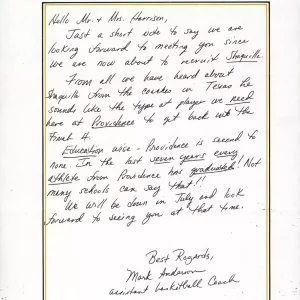 Hello Mr. & Mrs. Harrison,
Just a short note to say we are
looking forward to meeting you since
we are now about to recruit Shaquille.
From all we have heard about
Shaquille from the coaches in Texas he
sounds like the type of player we need
here at Providence to get back into the
Final 4.
Education wise - Providence is second to
none. In the last seven years every
athlete from Providence has graduated! Not
many schools can say that!!!
We will be down in July and look
forward to seeing you at that time.
Best Regards,
Mark Anderson
assistant basketball Coach